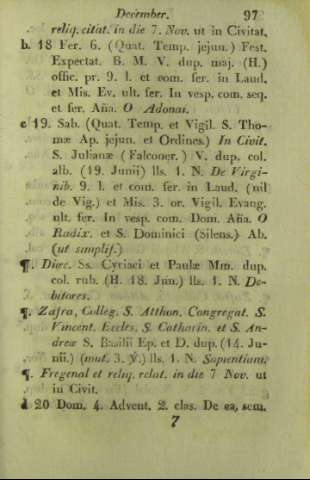 December. 97
reliq. citat. in die 7. Nov. ut in Civitat.
b. 18 Fer. 6. (Quat. Temp. jejun.) Fest.
Expectat. B. M. V. dup. maj. (H.)
offic. pr. 9. l. et com. fer. in Laud.
et Mis. Ev. ult. fer. In vesp. com. seq.
et fer. Aña. O Adonai.
c 19. Sab. (Quat. Temp. et Vigil. S. Tho-
mæ Ap. jejun. et Ordines.) In Civit.
S. Julianæ (Falconer.) V. dup. col.
alb. (19. Junii) lls. 1. N. De Virgi-
nib. 9. l. et com. fer. in Laud. (nil
de Vig.) et Mis. 3. or. Vigil. Evang.
ult. fer. In vesp. com. Dom. Aña. O
Radix. et S. Dominici (Silens.) Ab.
(ut simplif.)
¶. Diœc. Ss. Cyriaci et Paulæ Mm. dup.
col. rub. (H. 18. Jun.) lls. 1. N. De-
bitores.
¶. Zafra, Colleg. S. Atthon. Congregat. S.
Vincent. Eccles. S. Catharin. et S. An-
dreæ S. Basilii Ep. et D. dup. (14. Ju-
nii.) (mut. 3. ℣.) lls. 1. N. Sapientiam.
¶. Fregenal et reliq. relat. in die 7 Nov. ut
in Civit.
d 20 Dom. 4. Advent. 2. clas. De ea, sem.
7